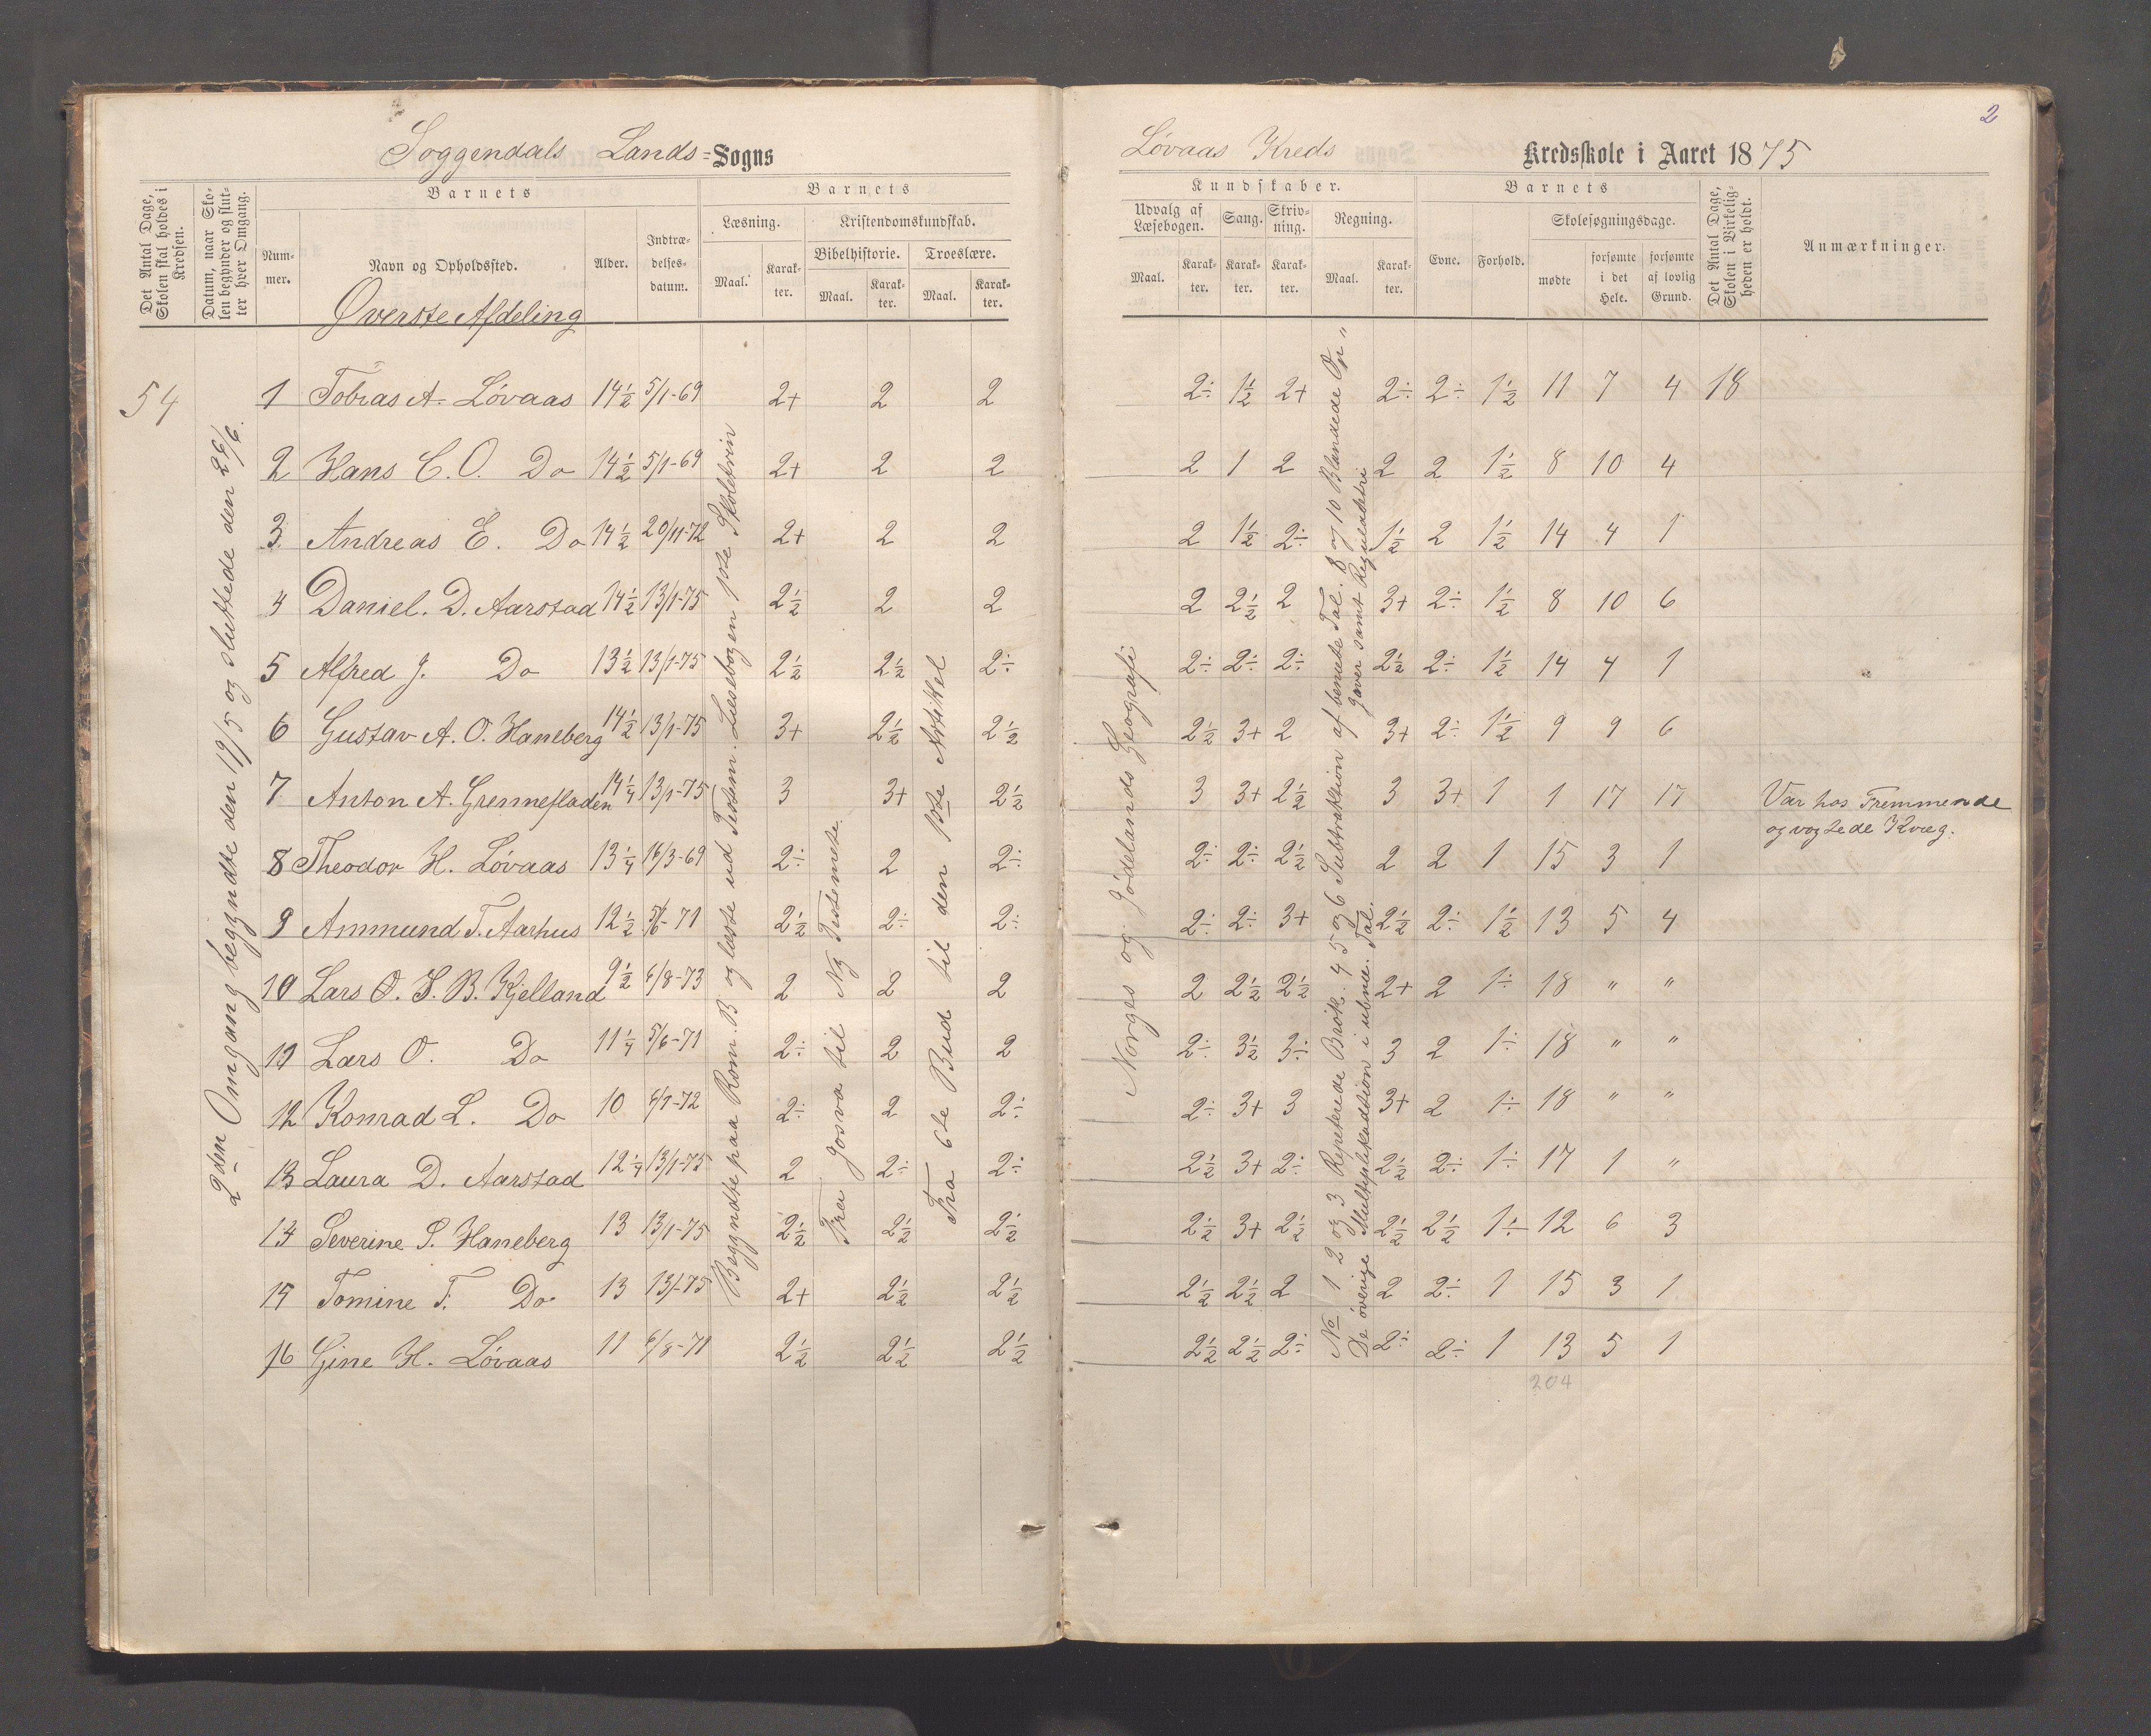 2
Soggendals Lands=Sogns
Løvaas Kreds Kredsskole i Aaret 1875
Det Antal Dage, Skolen skal holdes i Kredsen.
Datum, naar Skolen begynder og slutter hver Omgang.
Barnets
Nummer.
Navn og Opholdssted.
Alder.
Indtrædelsesdatum.
Barnets
Læsning.
Kristendomskundskab.
Bibelhistorie.
Troeslære.
Maal.
Karakter.
Maal.
Karakter.
Maal.
Karakter.
Kundskaber.
Udvalg af Læsebogen.
Sang.
Skrivning.
Regning.
Maal.
Karakter.
Karakter.
Karakter.
Maal.
Karakter.
Barnets
Evne.
Forhold.
Skolesøgningsdage.
mødte
forsømte i det Hele.
forsømte af lovlig Grund.
Det Antal Dage, Skolen i Virkeligheden er holdt.
Anmærkninger.
Øverste Afdeling
54
2den Omgang begyndte den 19/5 og sluttede den 26/6.
1 Tobias A. Løvaas 14½ 5/1-69 2+ 2 2 2÷ 1½ 2+ 2÷ 2÷ 1½ 11 7 4 18
2 Hans C. O. Do 14½ 5/1-69 2+ 2 2 2 1 2 2 2 1½ 8 10 4
3 Andreas E. Do 14½ 20/11-72 2+ 2 2 2 1½ 2÷ 1½ 2 1½ 14 4 1
4 Daniel. D. Aarstad 14½ 13/1-75 2½ 2 2 2 2½ 2 3+ 2÷ 1½ 8 10 6
5 Alfred J. Do 13½ 13/1-75 2½ 2½ 2÷ 2÷ 2÷ 2÷ 2½ 2÷ 1½ 14 4 1
6 Gustav A. O. Haneberg 14½ 13/1-75 3+ 2½ 2½ 2½ 3+ 2 3+ 2÷ 1½ 9 9 6
7 Anton A. Grennefladen 14¼ 13/1-75 3 3+ 2½ 3 3+ 2½ 3 3+ 1 1 17 17 Var hos Fremmende
og vogtede Kvæg.
8 Theodor H. Løvaas 13¼ 16/3-69 2÷ 2 2÷ 2÷ 2÷ 2½ 2 2 1 15 3 1
9 Ammund T. Aarhus 12½ 5/6-71 2½ 2÷ 2÷ 2÷ 2÷ 3+ 2½ 2÷ 1½ 13 5 4
10 Lars O. S. B. Kjelland 9½ 6/8-73 2 2 2 2 2½ 2½ 2+ 2 1÷ 18 " "
11 Lars O. Do 11¼ 5/6-71 2÷ 2 2 2÷ 3½ 3÷ 3 2 1÷ 18 " "
12 Konrad L. Do 10 6/7-72 2÷ 2 2÷ 2÷ 3+ 3 3+ 2 1÷ 18 " "
13 Laura D. Aarstad 12¼ 13/1-75 2 2÷ 2÷ 2½ 3+ 2÷ 2½ 2÷ 1÷ 17 1 "
14 Severine S. Haneberg 13 13/1-75 2½ 2½ 2½ 2½ 3+ 2½ 2½ 2½ 1÷ 12 6 3
15 Tomine T. Do 13 13/1-75 2+ 2½ 2½ 2½ 2½ 2 2 2÷ 1 15 3 1
16 Gine H. Løvaas 11 6/8-71 2½ 2½ 2½ 2½ 2½ 2÷ 2÷ 2÷ 1 13 5 1
204
Begyndte paa Rom. B og læste ud Testam. Læsebogen 1ste Skoletrin
Fra Josva til Ny Testemete.
Fra 6te Bud til den 1ste Artikel
Norges og Jødelands Geografi
No 1 2 og 3 Repeterede Brøk. 4 5 og 6 Subtraktion af benevnte Tal. 8 og 10 Blandede Op"
gaver samt Reguladetri
De øverige Multiplikadtion i ubne. Tal.